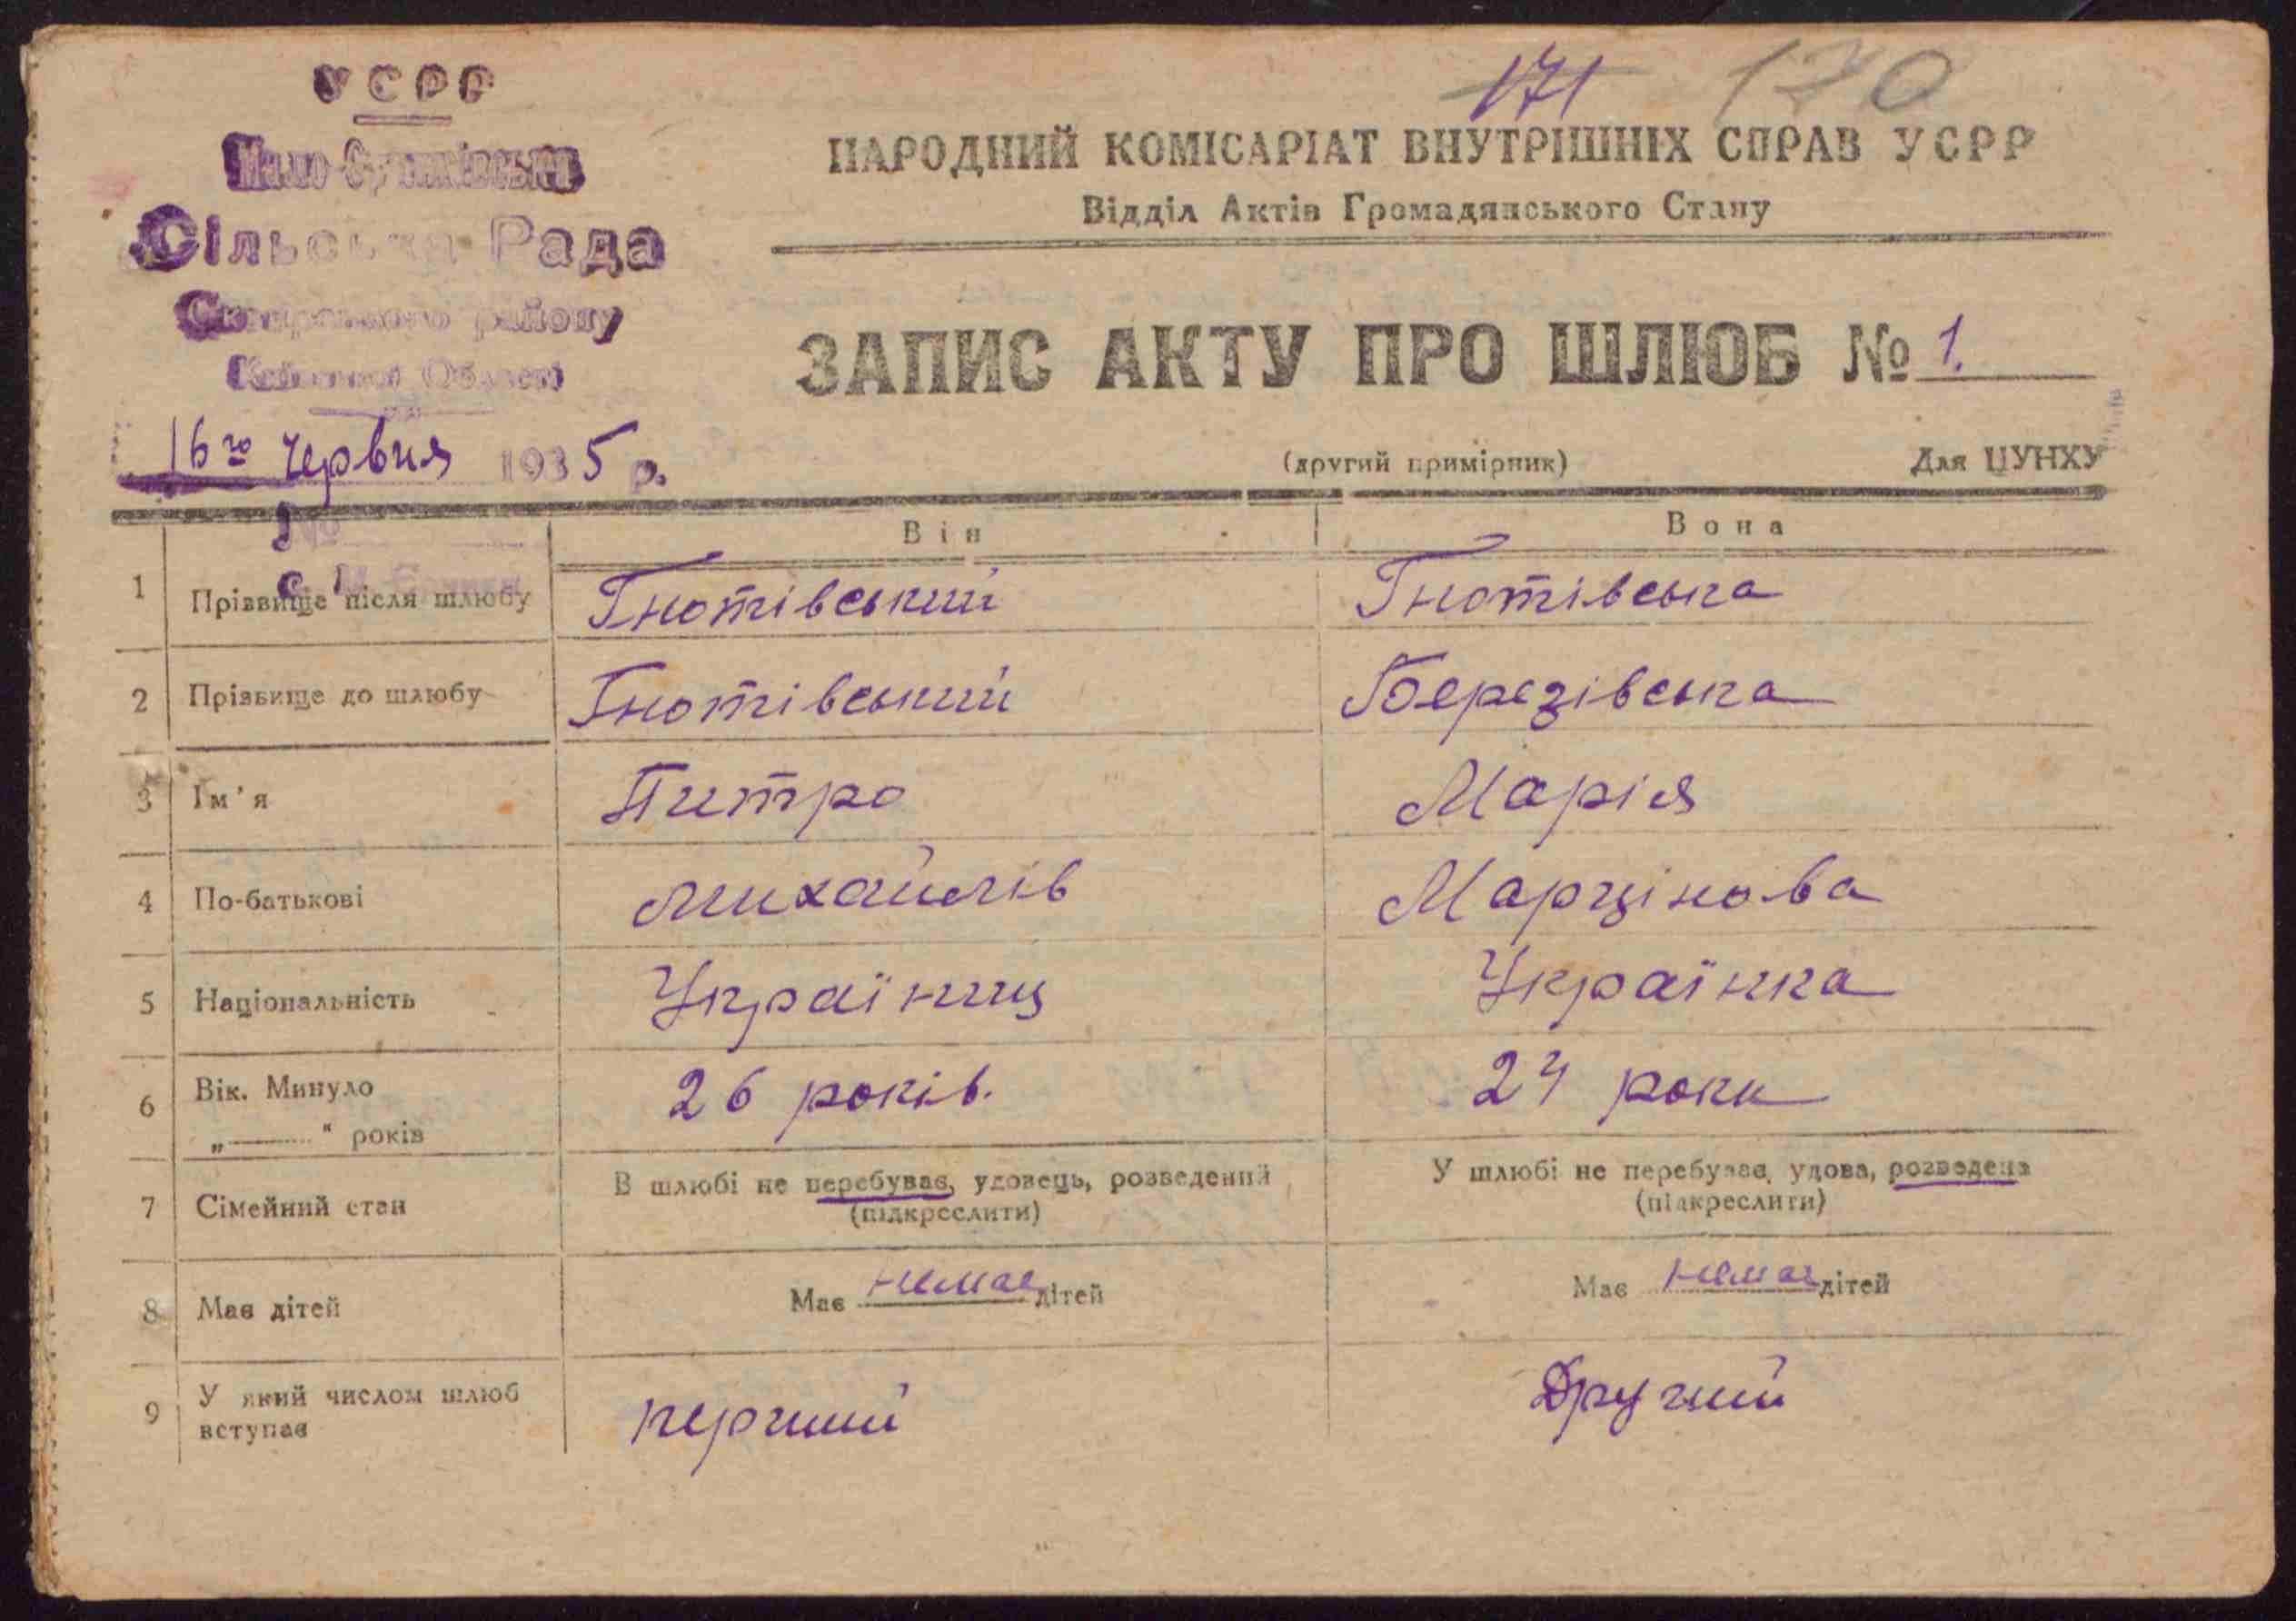 171 170
УСРР
Сільська Рада
Сквирського району
Київської Області
16го червня 1935 р.
№
НАРОДНИЙ КОМІСАРІАТ ВНУТРІШНІХ СПРАВ УСРР
Відділ Актів Громадянського Стану
ЗАПИС АКТУ ПРО ШЛЮБ № 1.
(другий примірник) Для ЦУНХУ
Він Вона
1 Прізвище після шлюбу Гнотівський Гнотівська
2 Прізвище до шлюбу Гнотівський Березівська
3 Ім'я Питро Марія
4 По-батькові Михайлів Марцінова
5 Національність Україниц Українка
6 Вік. Минуло „ “ років 26 років. 24 роки
7 Сімейний стан В шлюбі не перебуває, удовець, розведений (підкреслити) У шлюбі не перебуває, удова, розведена (підкреслити)
8 Має дітей Має немає дітей Має немає дітей
9 У який числом шлюб вступає перший Другий